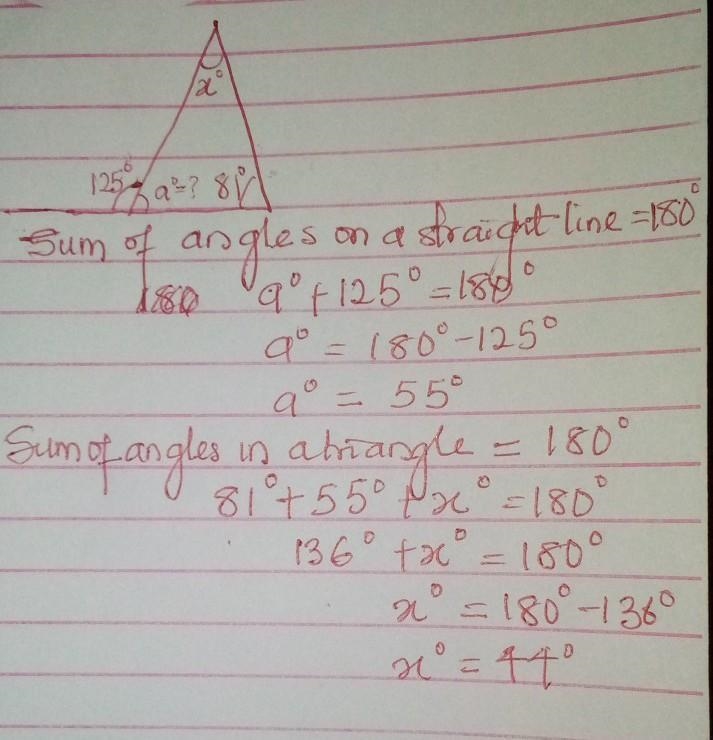 x°
125° a°=? 81
Sum of angles on a straight line = 180°
180 a° + 125° = 180°
a° = 180° - 125°
a° = 55°
Sum of angles in a triangle = 180°
81° + 55° + x° = 180°
136° + x° = 180°
x° = 180° - 136°
x° = 44°